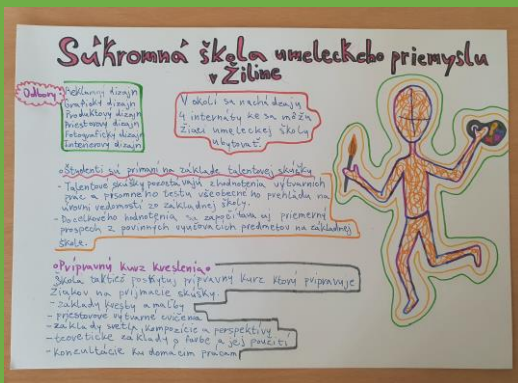 Súkromná škola umeleckeho priemyslu
v Žiline
Odbory:
Reklamný dizajn
Grafický dizajn
Produktový dizajn
Priestorový dizajn
Fotografický dizajn
Interierový dizajn
V okolí sa nachádzajú
4 internáty ke sa môžu
žiaci umeleckej školy
ubytovať.
Študenti sú prímaní na základe talentovej skúšky
- Talentové skúšky pozostávajú z hodnotenia výtvarních
prác a písomneho testu všeobecneho prehľadu na
úrovni vedomostí zo základnej školy.
- Do celkového hodnotenia sa započítava aj priemerný
prospech z povinných vyučovacích predmetov na základnej
škole.
Prípravný kurz kreslenia
Škola taktiež poskytuj prípravný kurz ktorý pripravuje
žiakov na príjmacie skúšky.
- základy kresby a maľby
- priestorove výtvarné cvičenia
- základy svetla, kompozície a perspektívy
- teoretické základy o farbe a jej použití
- Konzultácie ku domacim prácam